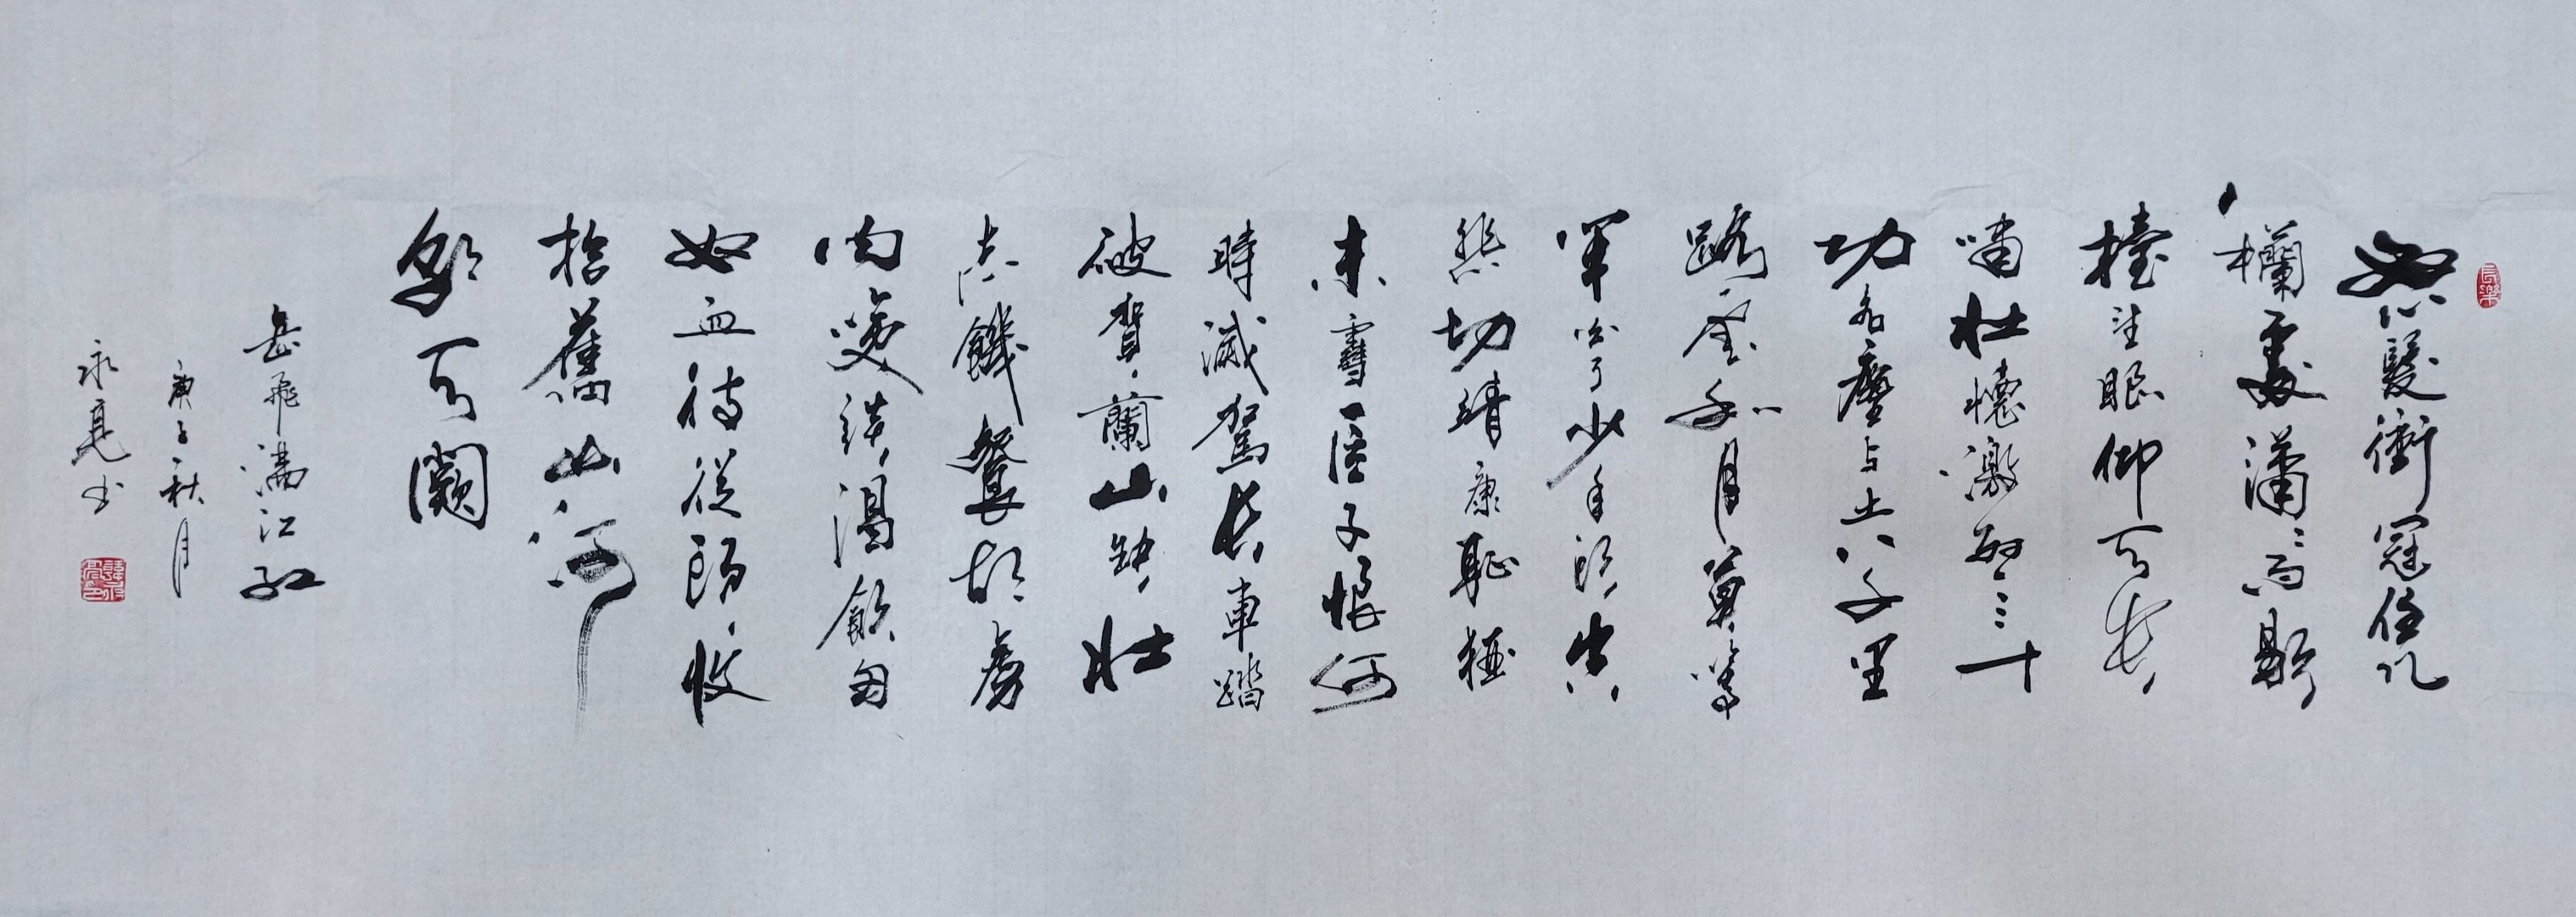 長樂
怒髮衝冠凭
欄處瀟瀟雨歇
擡望眼仰天長
嘯壯懷激烈三十
功名塵与土八千里
路雲和月莫等
閒白了少年頭空
悲切靖康恥猶
未雪臣子恨何
時滅駕長車踏
破賀蘭山缺壯
志饑餐胡虜
肉笑談渴飲匈
奴血待從頭收
拾舊山河
朝天闕
岳飛滿江紅
庚子秋月
永亮书